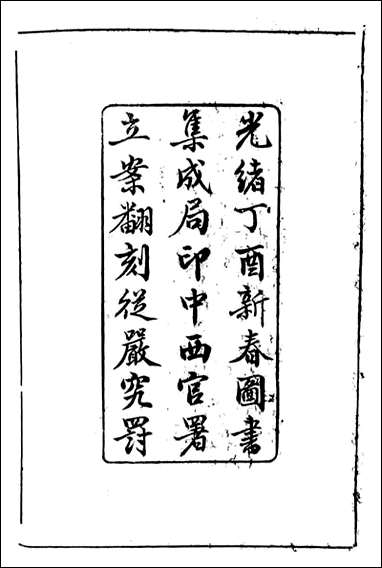 光緒丁酉新春圖書
集成局印中西官署
立案翻刻從嚴究罸